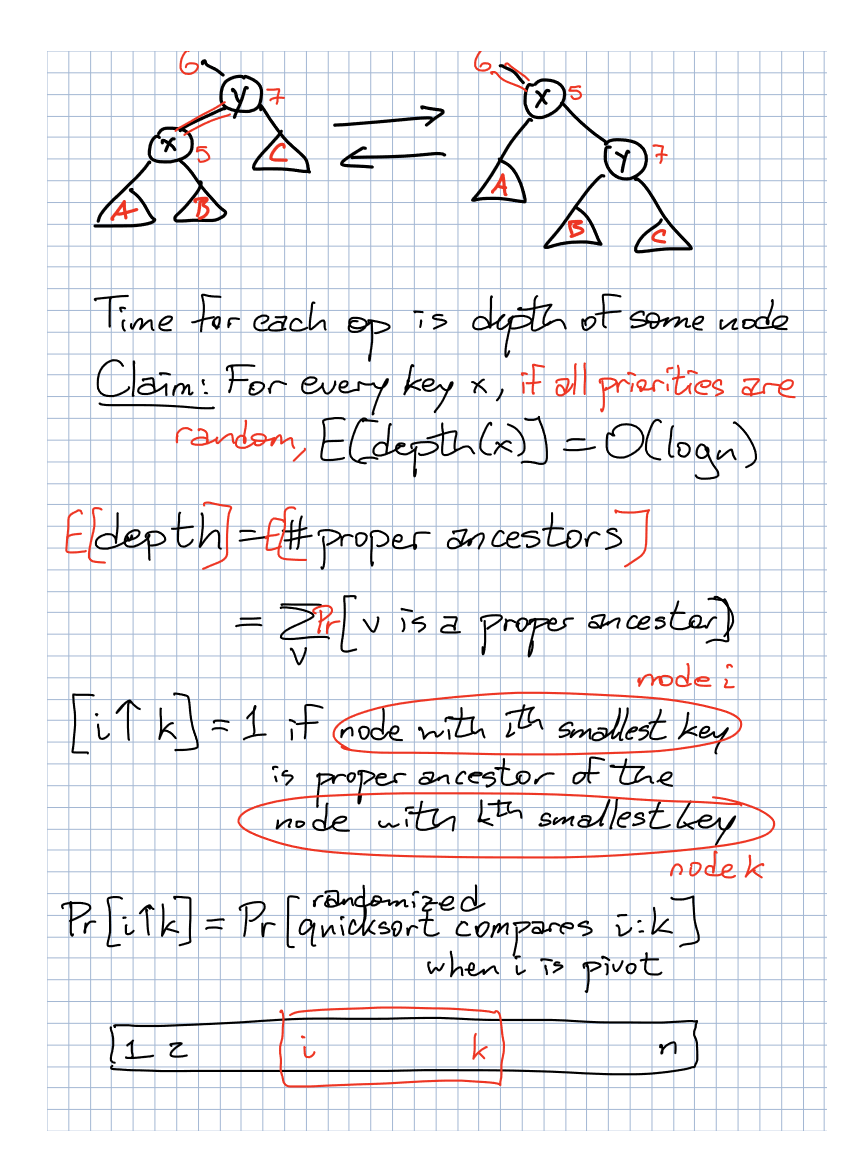 6 y 7 6 x 5
x 5 C Y 7
A B A B C
Time for each op is depth of some node
Claim: For every key x, if all priorities are
random, E[depth(x)] = O(log n)
E[depth] = E[# proper ancestors]
= ∑ Pr[v is a proper ancestor]
v
node i
[i↑k] = 1 if node with ith smallest key
is proper ancestor of the
node with kth smallest key
node k
randomized
Pr[i↑k] = Pr[quicksort compares i:k]
when i is pivot
1 2 i k n